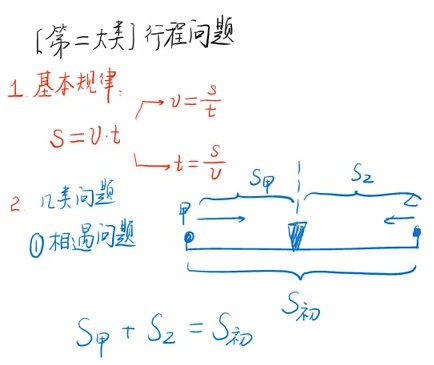 [第二大类] 行程问题
1. 基本规律:
v = s/t
S = v·t
t = s/v
2. 几类问题
① 相遇问题
S甲 S乙
甲 乙
S初
S甲 + S乙 = S初